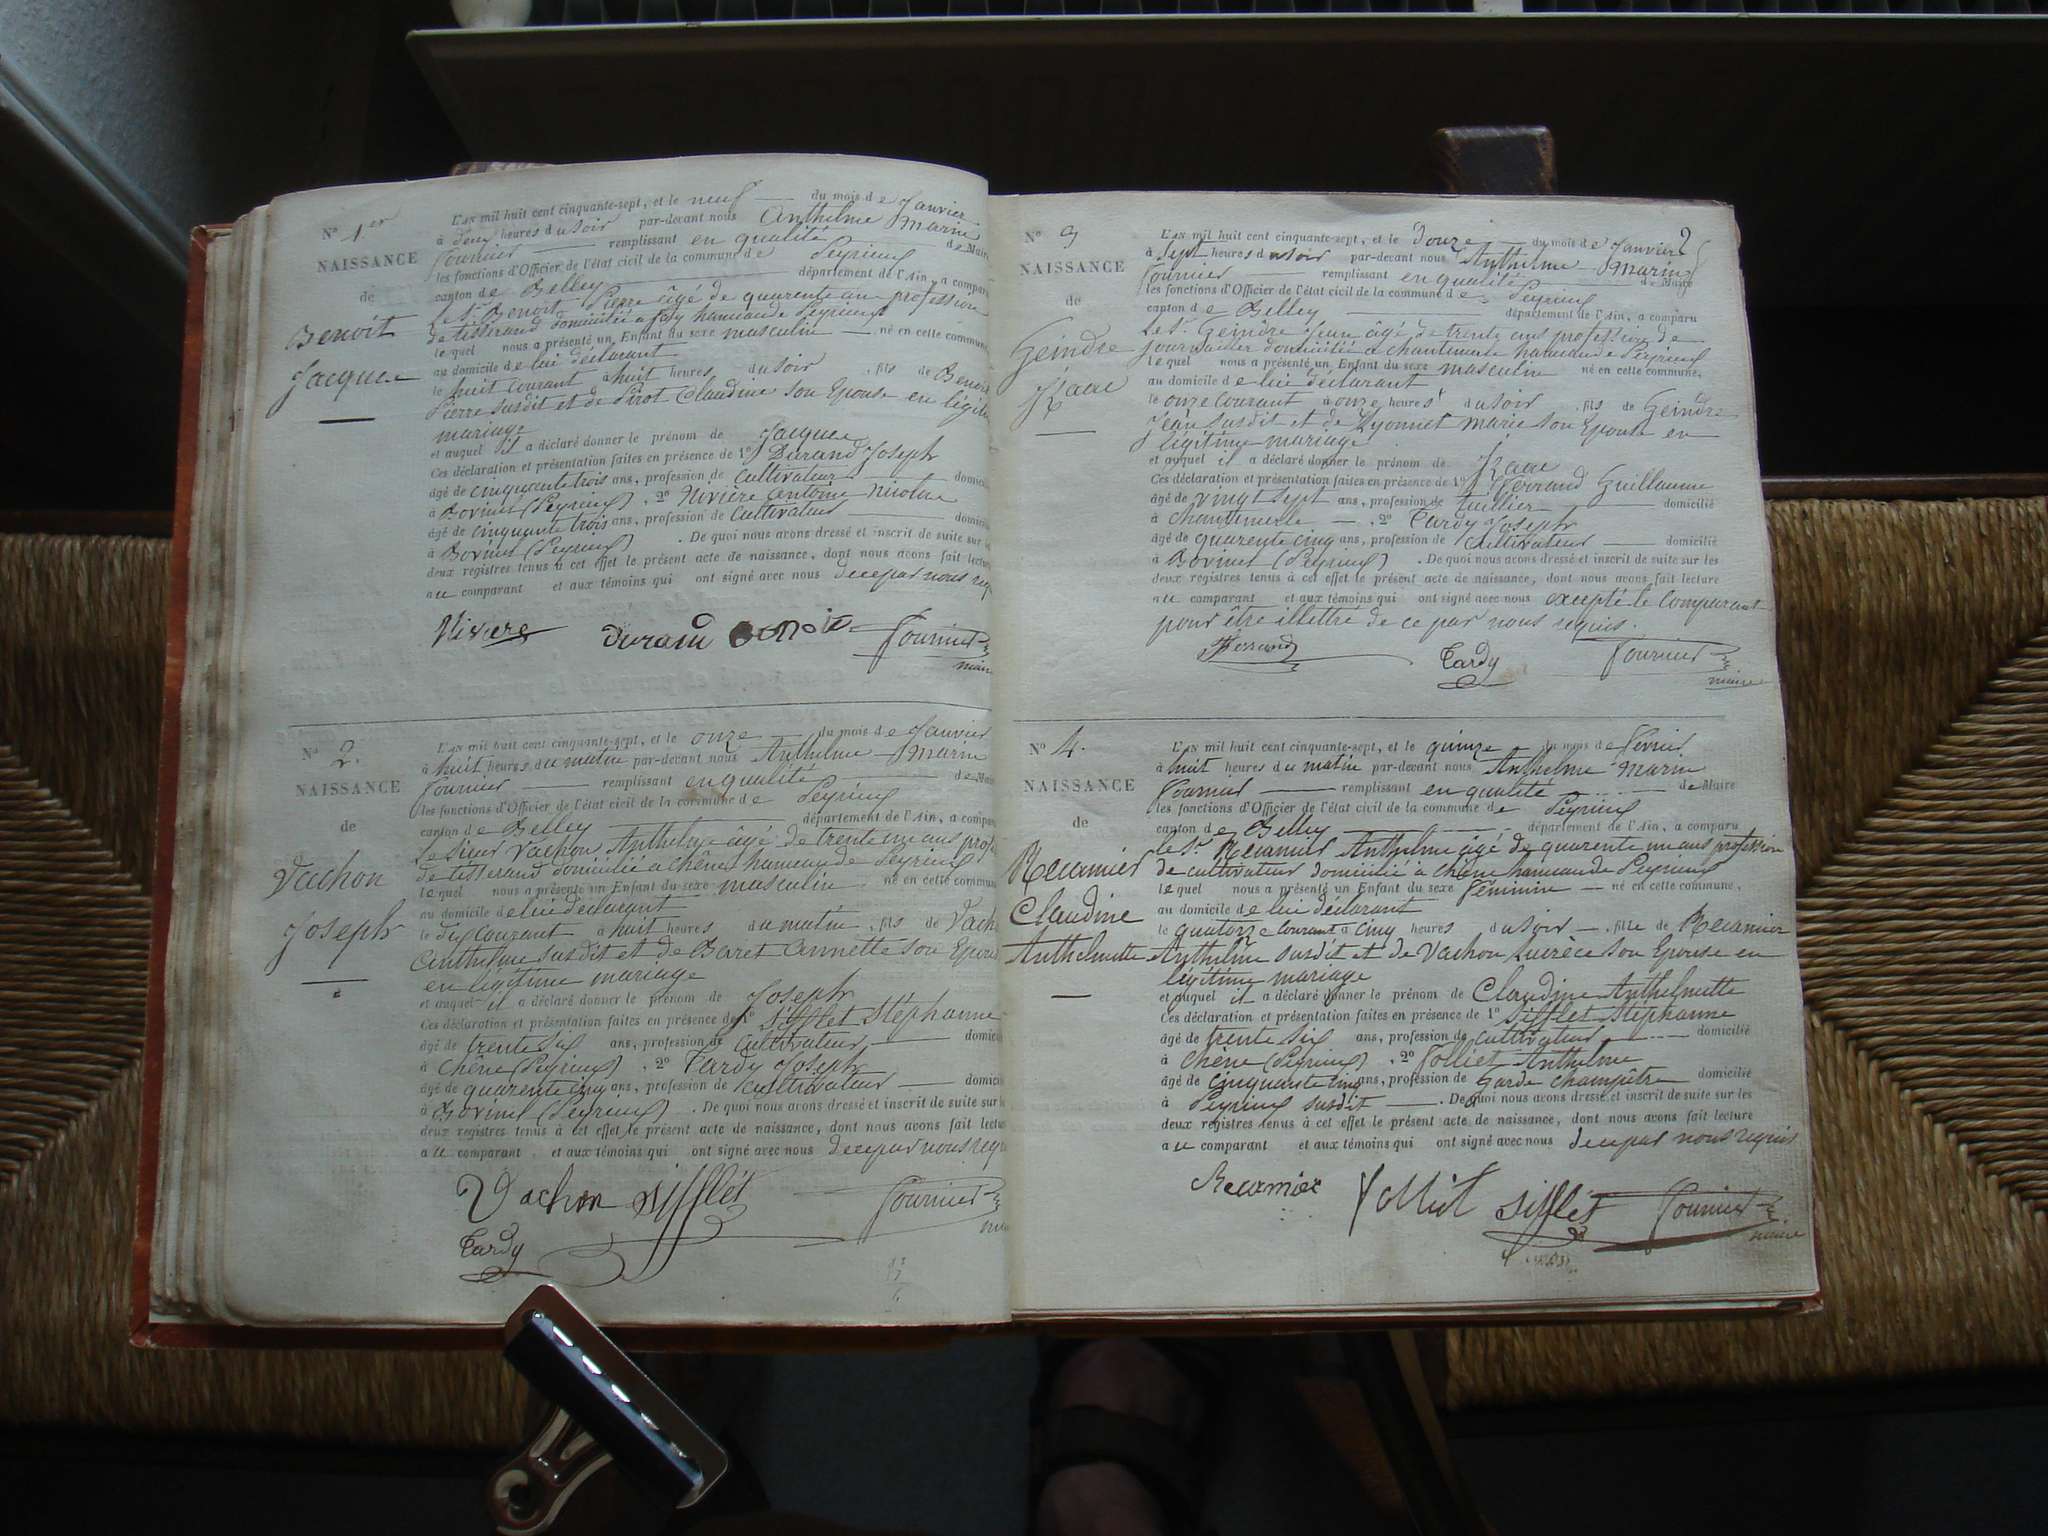 N° 1er
NAISSANCE
de
Benoit
Jacques
L'AN mil huit cent cinquante-sept, et le neuf du mois de Janvier
à deux heures du soir par-devant nous Anthelme Marin
Fournier remplissant en qualité de Maire
les fonctions d'Officier de l'état civil de la commune de Peyrieu
canton de Belley département de l'Ain, a comparu
le Sr Benoit Pierre âgé de quarente ans profession
de tisserand domicilié à fay hameau de Peyrieu
lequel nous a présenté un Enfant du sexe masculin né en cette commune
au domicile de lui déclarant
le huit courant à huit heures du soir, fils de Benoit
Pierre susdit et de Pirot Claudine son Epouse en légitime
mariage
et auquel il a déclaré donner le prénom de Jacques
Ces déclaration et présentation faites en présence de 1° Durand Joseph
âgé de cinquante trois ans, profession de cultivateur domicilié
à Bovinel (Peyrieu), 2° Nivière Antoine Nicolas
âgé de cinquante trois ans, profession de cultivateur domicilié
à Bovinel (Peyrieu). De quoi nous avons dressé et inscrit de suite sur les
deux registres tenus à cet effet le présent acte de naissance, dont nous avons fait lecture
au comparant et aux témoins qui ont signé avec nous de ce par nous requis
Nivière Durand Benoit Fournier
maire
N° 2.
NAISSANCE
de
Vachon
Joseph
L'AN mil huit cent cinquante-sept, et le onze du mois de Janvier
à huit heures du matin par-devant nous Anthelme Marin
Fournier remplissant en qualité de Maire
les fonctions d'Officier de l'état civil de la commune de Peyrieu
canton de Belley département de l'Ain, a comparu
le sieur Vachon Anthelme âgé de trente un ans prof
de tisserand domicilié à Chêne hameau de Peyrieu
lequel nous a présenté un Enfant du sexe masculin né en cette commune
au domicile de lui déclarant
le dix courant à huit heures du matin, fils de Vachon
Anthelme susdit et de Baret Annette son Epouse
en légitime mariage
et auquel il a déclaré donner le prénom de Joseph
Ces déclaration et présentation faites en présence de 1° Sifflet Stéphanne
âgé de trente six ans, profession de cultivateur domicilié
à Chêne (Peyrieu), 2° Tardy Joseph
âgé de quarente cinq ans, profession de cultivateur domicilié
à Bovinel (Peyrieu). De quoi nous avons dressé et inscrit de suite sur les
deux registres tenus à cet effet le présent acte de naissance, dont nous avons fait lecture
au comparant et aux témoins qui ont signé avec nous de ce par nous requis
Vachon Sifflet Fournier
maire
Tardy
2
N° 3
NAISSANCE
de
Geindre
Izaac
L'AN mil huit cent cinquante-sept, et le douze du mois de Janvier
à sept heures du soir par-devant nous Anthelme Marin
Fournier remplissant en qualité de Maire
les fonctions d'Officier de l'état civil de la commune de Peyrieu
canton de Belley département de l'Ain, a comparu
le Sr Geindre Jean âgé de trente ans profession de
journailler domicilié à Chantemerle hameau de Peyrieu
lequel nous a présenté un Enfant du sexe masculin né en cette commune,
au domicile de lui déclarant
le onze courant à onze heures du soir, fils de Geindre
Jean susdit et de Guyonnet Marie son Epouse en
légitime mariage
et auquel il a déclaré donner le prénom de Izaac
Ces déclaration et présentation faites en présence de 1° Ferrand Guillaume
âgé de vingt sept ans, profession de tuillier domicilié
à Chantemerle, 2° Tardy Joseph
âgé de quarente cinq ans, profession de cultivateur domicilié
à Bovinel (Peyrieu). De quoi nous avons dressé et inscrit de suite sur les
deux registres tenus à cet effet le présent acte de naissance, dont nous avons fait lecture
au comparant et aux témoins qui ont signé avec nous excepté le comparant
pour être illettré de ce par nous requis.
Ferrand Tardy Fournier
maire
N° 4.
NAISSANCE
de
Recamier
Claudine
Anthelmette
L'AN mil huit cent cinquante-sept, et le quinze du mois de Février
à huit heures du matin par-devant nous Anthelme Marin
Fournier remplissant en qualité de Maire
les fonctions d'Officier de l'état civil de la commune de Peyrieu
canton de Belley département de l'Ain, a comparu
le Sr Recamier Anthelme âgé de quarente un ans profession
de cultivateur domicilié à Chêne hameau de Peyrieu
lequel nous a présenté un Enfant du sexe féminin né en cette commune,
au domicile de lui déclarant
le quatorze courant à cinq heures du soir, fille de Recamier
Anthelme susdit et de Vachon Lucrèce son Epouse en
légitime mariage
et auquel il a déclaré donner le prénom de Claudine Anthelmette
Ces déclaration et présentation faites en présence de 1° Sifflet Stéphanne
âgé de trente six ans, profession de cultivateur domicilié
à Chêne (Peyrieu), 2° Folliet Anthelme
âgé de cinquante cinq ans, profession de Garde champêtre domicilié
à Peyrieu susdit. De quoi nous avons dressé et inscrit de suite sur les
deux registres tenus à cet effet le présent acte de naissance, dont nous avons fait lecture
au comparant et aux témoins qui ont signé avec nous de ce par nous requis
Recamier Folliet Sifflet Fournier
maire